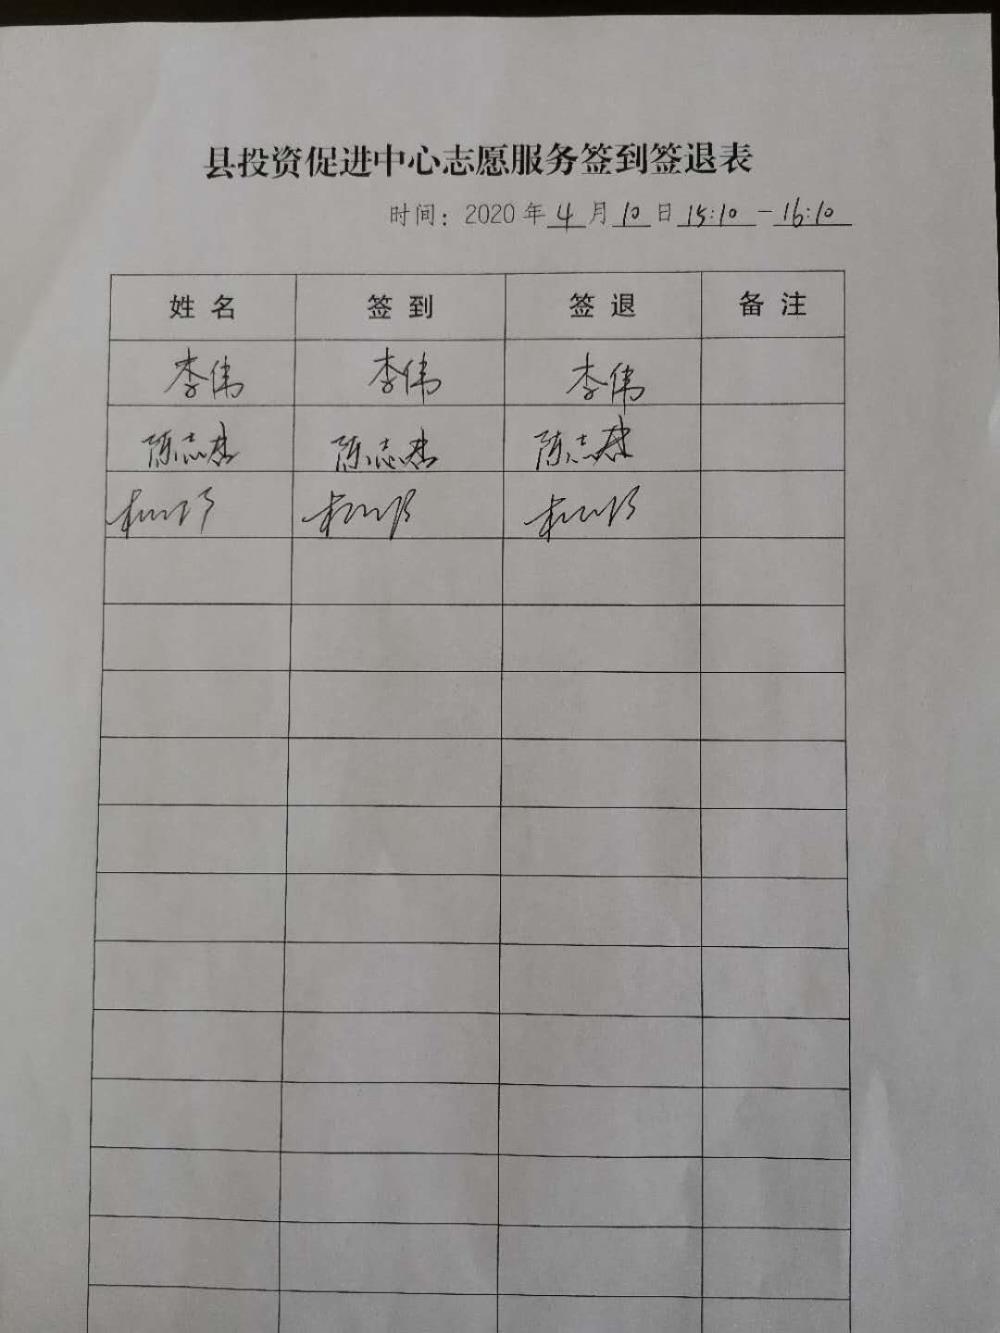 县投资促进中心志愿服务签到签退表
时间：2020年4月10日15:10-16:10
姓名 签到 签退 备注
李伟 李伟 李伟